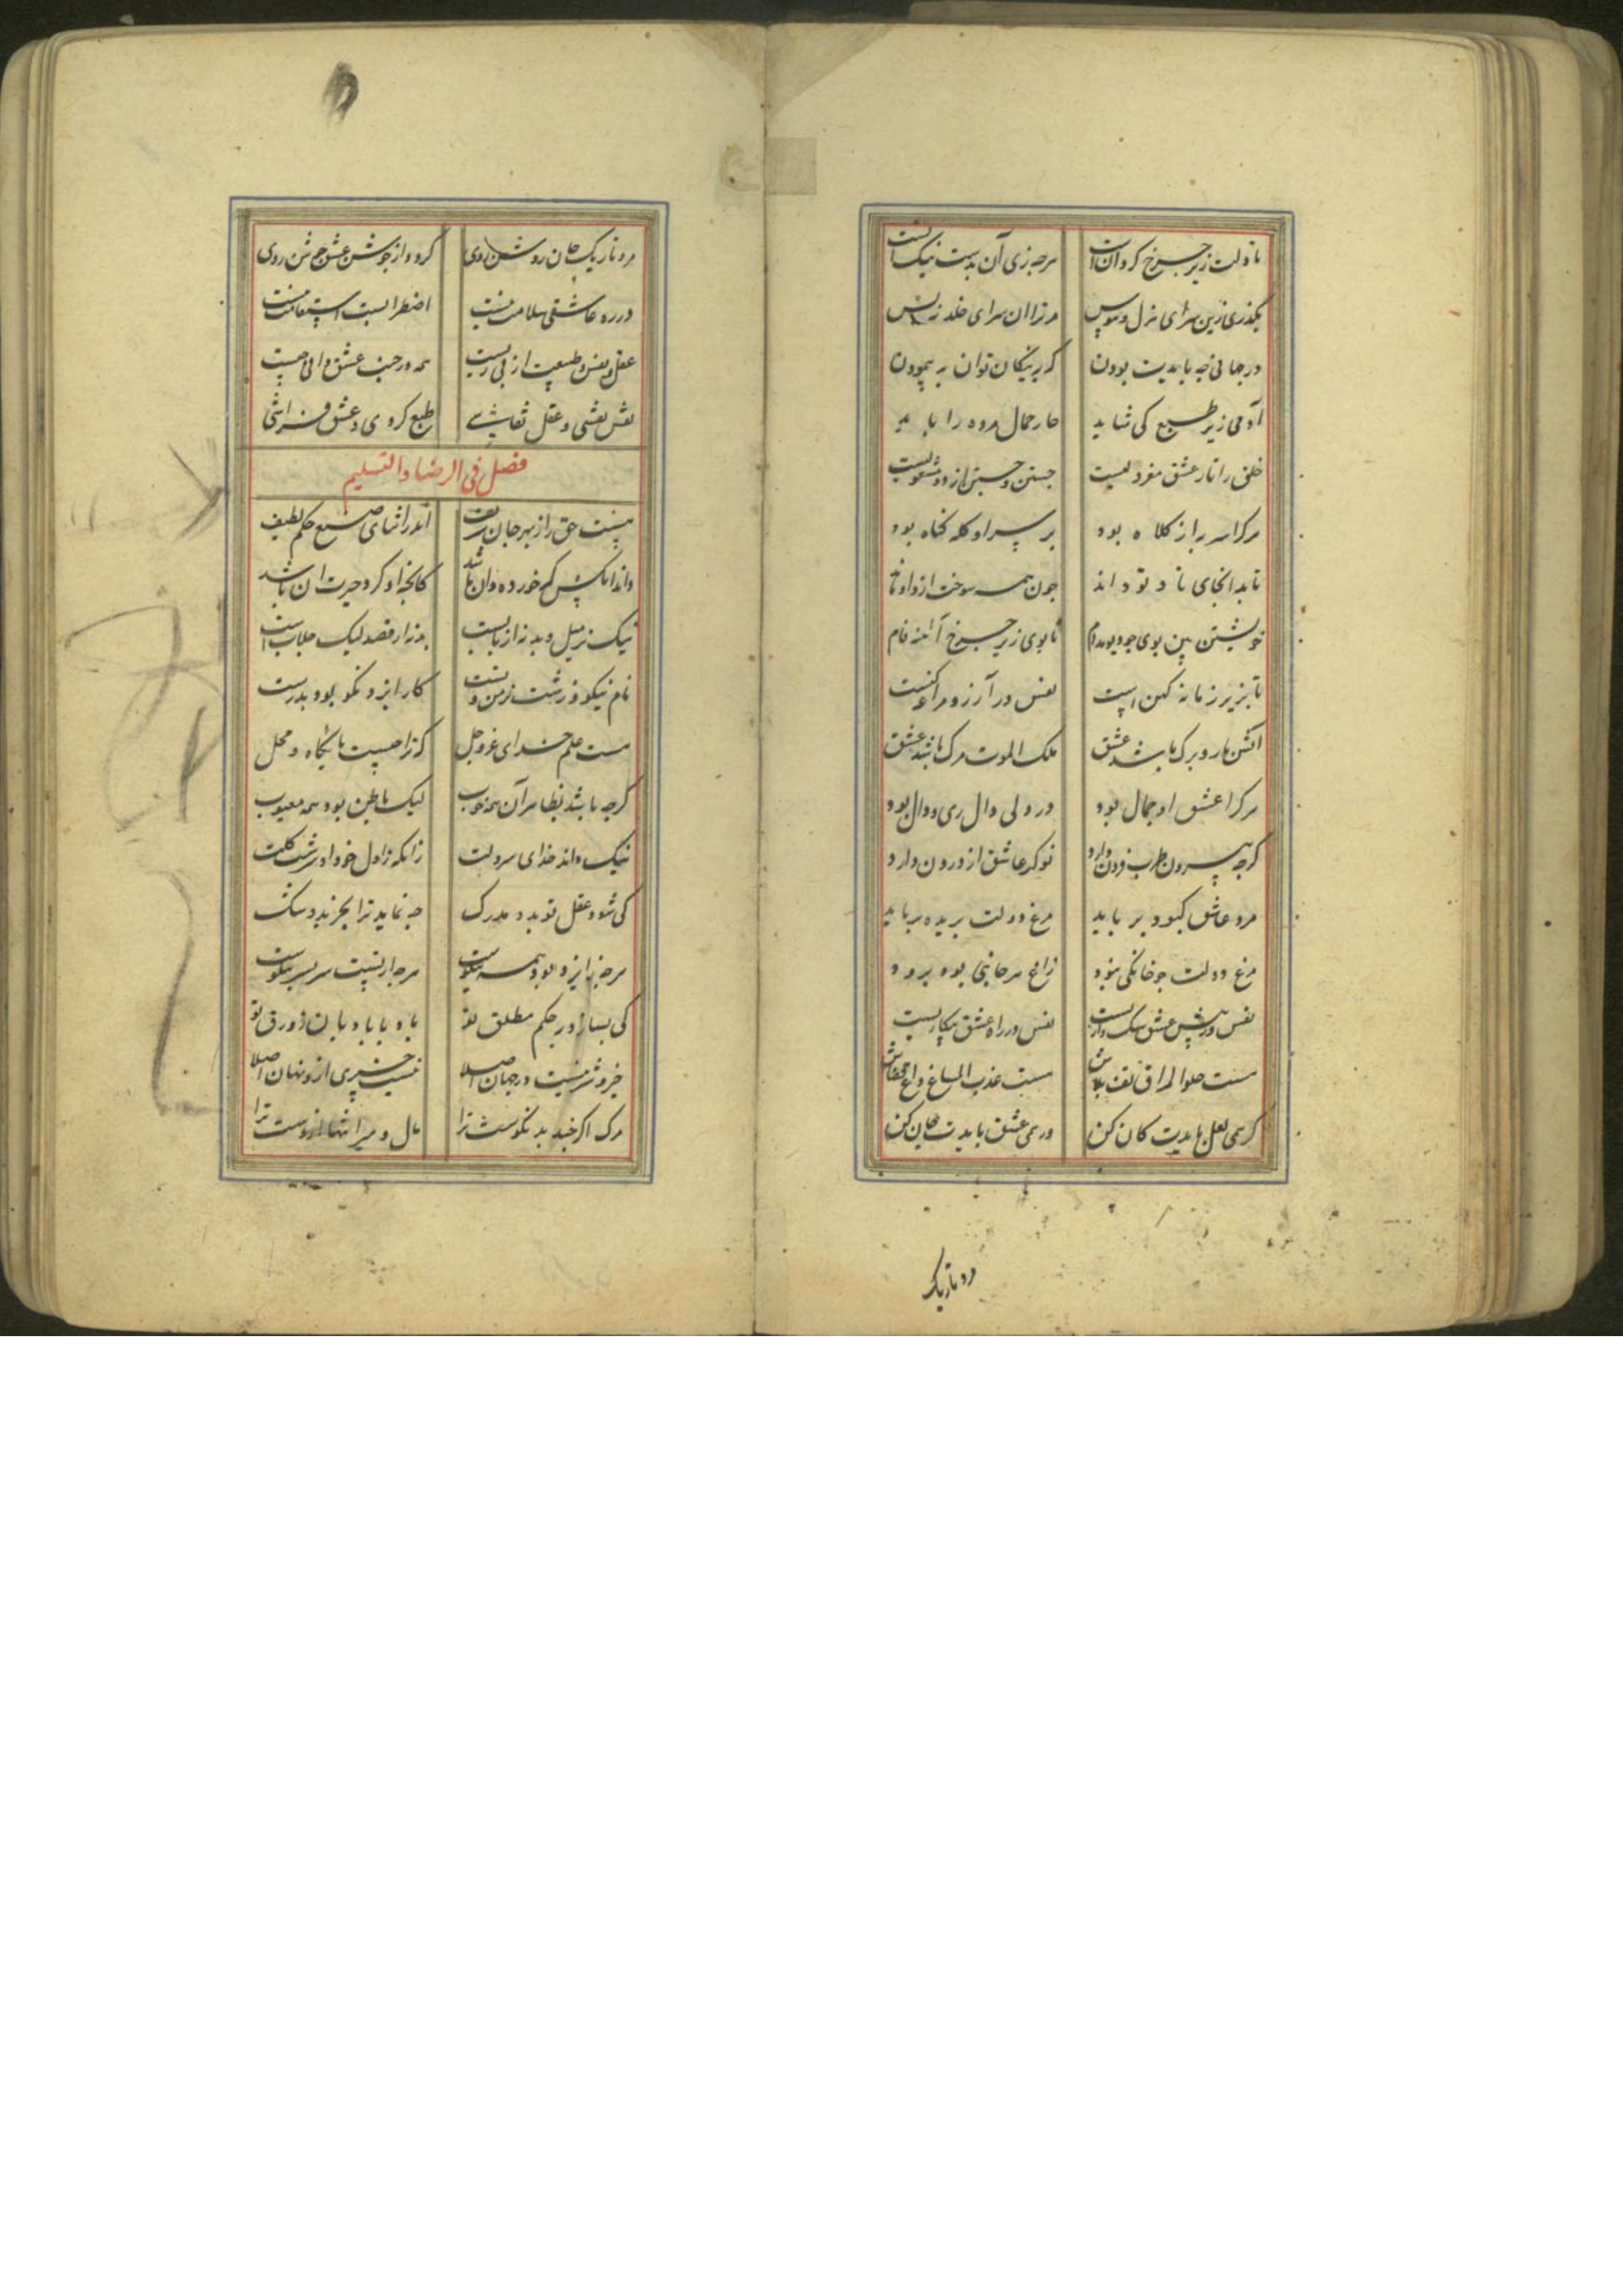 تا دلت زیر چرخ گردانست هرچه زی آن بدست نیک آنست
بگذری زین سرای هزل و هوس مر ترا آن سرای خلد نه بس
در جهانی چه بایدت بودن که به پیکان توان به پیمودن
آدمی زیر طبع کی شاید جار حمال مرده را باید
خلق را تار عشق مفرد نیست جستن و جستن از
هرکرا سر به از کلاه بود بر سر او کله گناه بود
تا به آنجای تا تو داند چون همه سوخت او او ماند
خویشتن بین بوی چو دیو مدام تا بوی زیر چرخ آینه فام
تا بزیر زمانه کهن است نفس در آرزو
آتش بار و برگ باشد عشق ملک الموت مرگ باشد عشق
هرکرا عشق او جمال بود در دلی دال ری و دال بود
گرچه بیرون طرب فزون دارد نوک عاشق از درون دارد
مرد عاشق کبود بر باید مرغ دولت بریده بر باید
مرغ دولت چو خانگی نبود زاغ هر جانبی بود برود
نفس در پیش عشق سک داریست نفس در راه عشق بیکاریست
هست حلو المذاق تف بلاش هست عذب المساغ داغ قفاش
گر همی لعل بایدت کان کن ور همی عشق بایدت جان کن
مرد تاریک
مرد تاریک جان روشن روی گردد از جوشن عشق روی
در ره عاشقی سلامت نیست اضطرابست استقامت نیست
عقل و نفس و طبیعت از پی زیست همه در جنب عشق دانی چیست
نفس نقشی و عقل نقاشی طبع گردی و عشق فراشی
فصل فی الرضا و التسلیم
نیست حق را ز بهر جان شریف اندر اثنای صنع حکم لطیف
داند آنکش کم خورده دان باشد کانچه او کرد خیرت آن باشد
نیک نز میل و بد نه از بابست به نه از قصد لیک
نام نیکو و زشت از من و تست کار ایزد نکو بود بدرست
هست علم خدای عز و جل که ترا چیست بایگاه و محل
گرچه باشد بظاهر آن همه خوب لیک باطن بود همه معیوب
نیک داند خدای سر دلت زانکه ز اول خود او سرشت گلت
کی شود عقل تو بدو مدرک چه نماید ترا بجز بد و شک
هرچه ز ایزد بود همه نیکوست هرچه از تست سر بسر نیکوست
کی بسازد در حکم مطلق تو باد با بادبان زورق تو
خیر و شر نیست در جهان اصلا نیست چیزی ازو نهان اصلا
مرگ اگر چند بد نکوست ترا مال و میراثها ازوست ترا